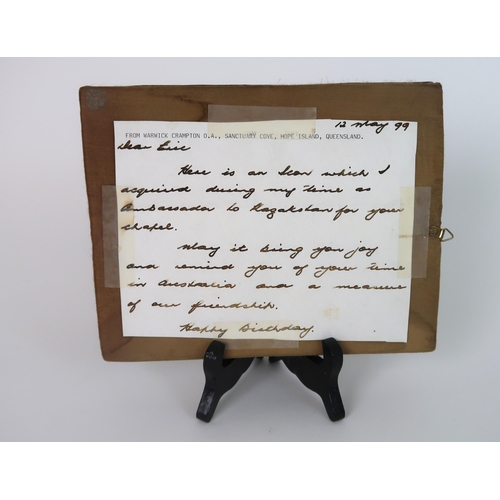 12 May 99
FROM WARWICK CRAMPTON O.A., SANCTUARY COVE, HOPE ISLAND, QUEENSLAND.
Dear Eric
Here is an Icon which I
acquired during my time as
Ambassador to Kazakstan for your
chapel.
May it bring you joy
and remind you of your time
in Australia and a measure
of our friendship.
Happy Birthday.